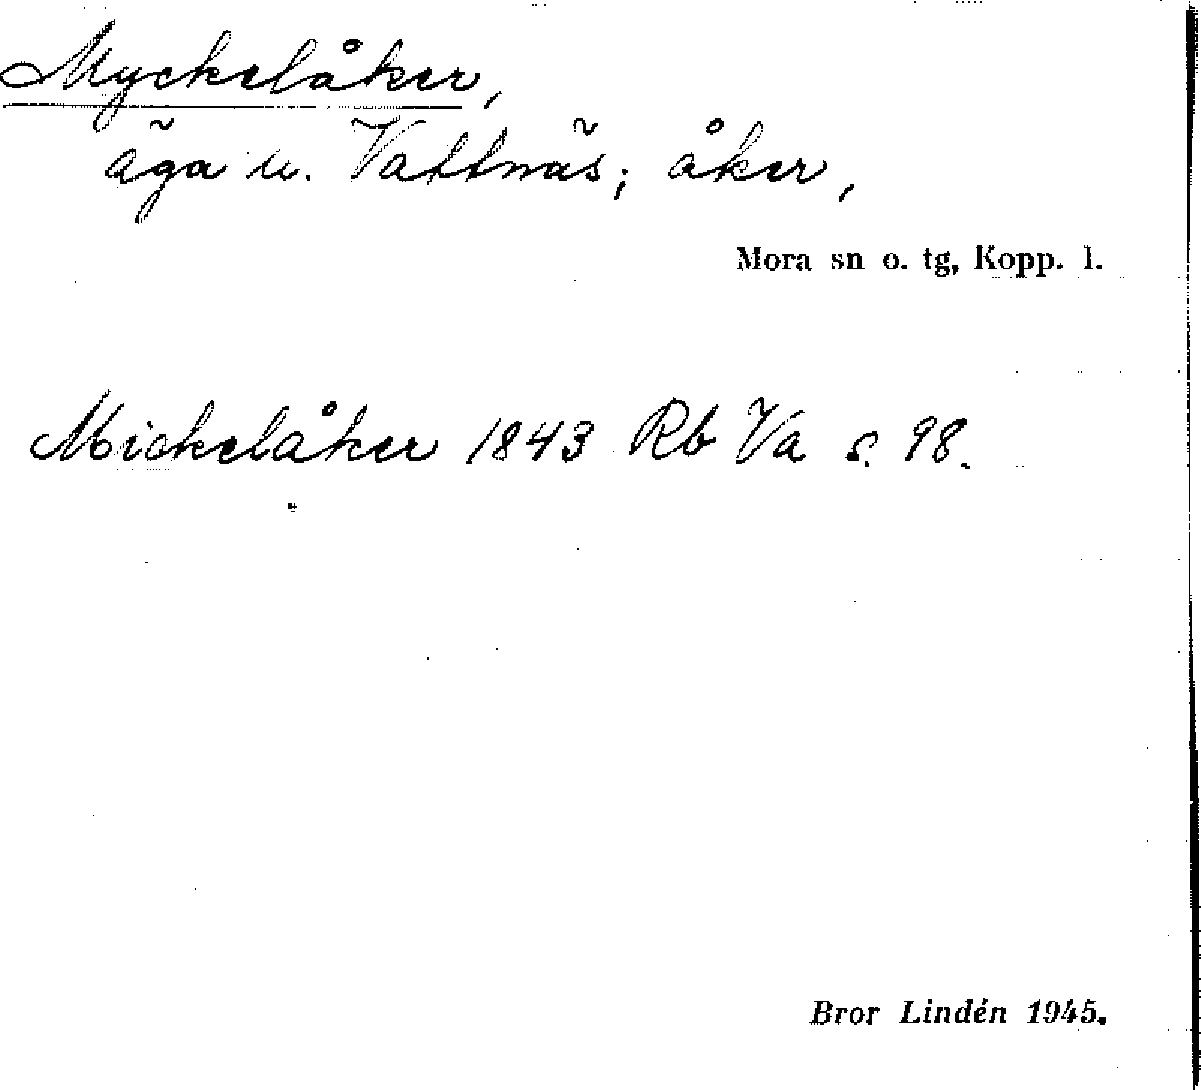 Myckelåker,
äga u. Vattnäs; åker,
Mora sn o. tg, Kopp. l.
Mickelåker 1843 Rb Va s. 98.
Bror Lindén 1945.